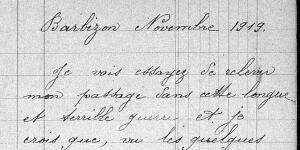 Barbizon Novembre 1919.
Je vais essayez de relever
mon passage dans cette longue
et terrible guerre et je
crois que, vu les quelques